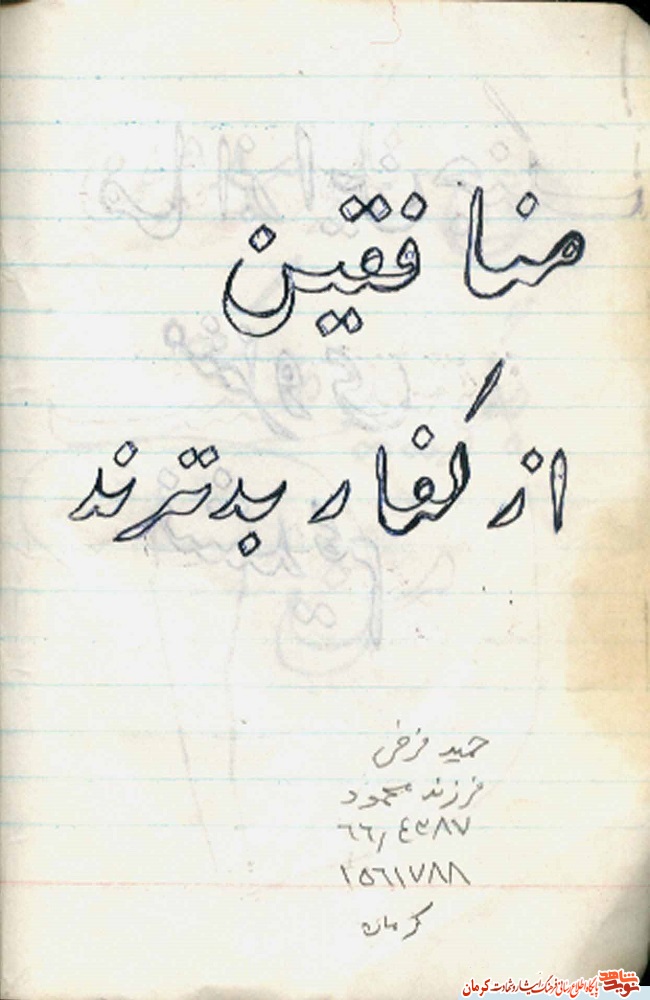 منافقین
از کفار بدترند
حمید فرخی
فرزند محمود
٦٦/٤٣٨٧
١٥٦١٧٨٨
کرمان
نوید شاهد پایگاه اطلاع رسانی فرهنگ ایثار و شهادت کرمان